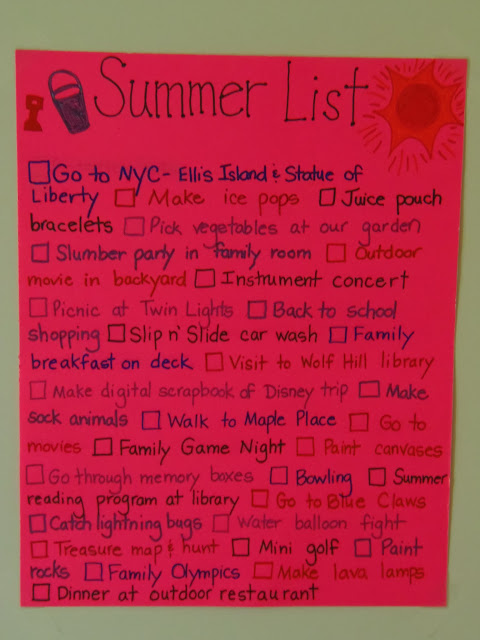 Summer List
Go to NYC - Ellis Island & Statue of
Liberty Make ice pops Juice pouch
bracelets Pick vegetables at our garden
Slumber party in family room Outdoor
movie in backyard Instrument concert
Picnic at Twin Lights Back to school
shopping Slip n' Slide car wash Family
breakfast on deck Visit to Wolf Hill library
Make digital scrapbook of Disney trip Make
sock animals Walk to Maple Place Go to
movies Family Game Night Paint canvases
Go through memory boxes Bowling Summer
reading program at library Go to Blue Claws
Catch lightning bugs Water balloon fight
Treasure map & hunt Mini golf Paint
rocks Family Olympics Make lava lamps
Dinner at outdoor restaurant